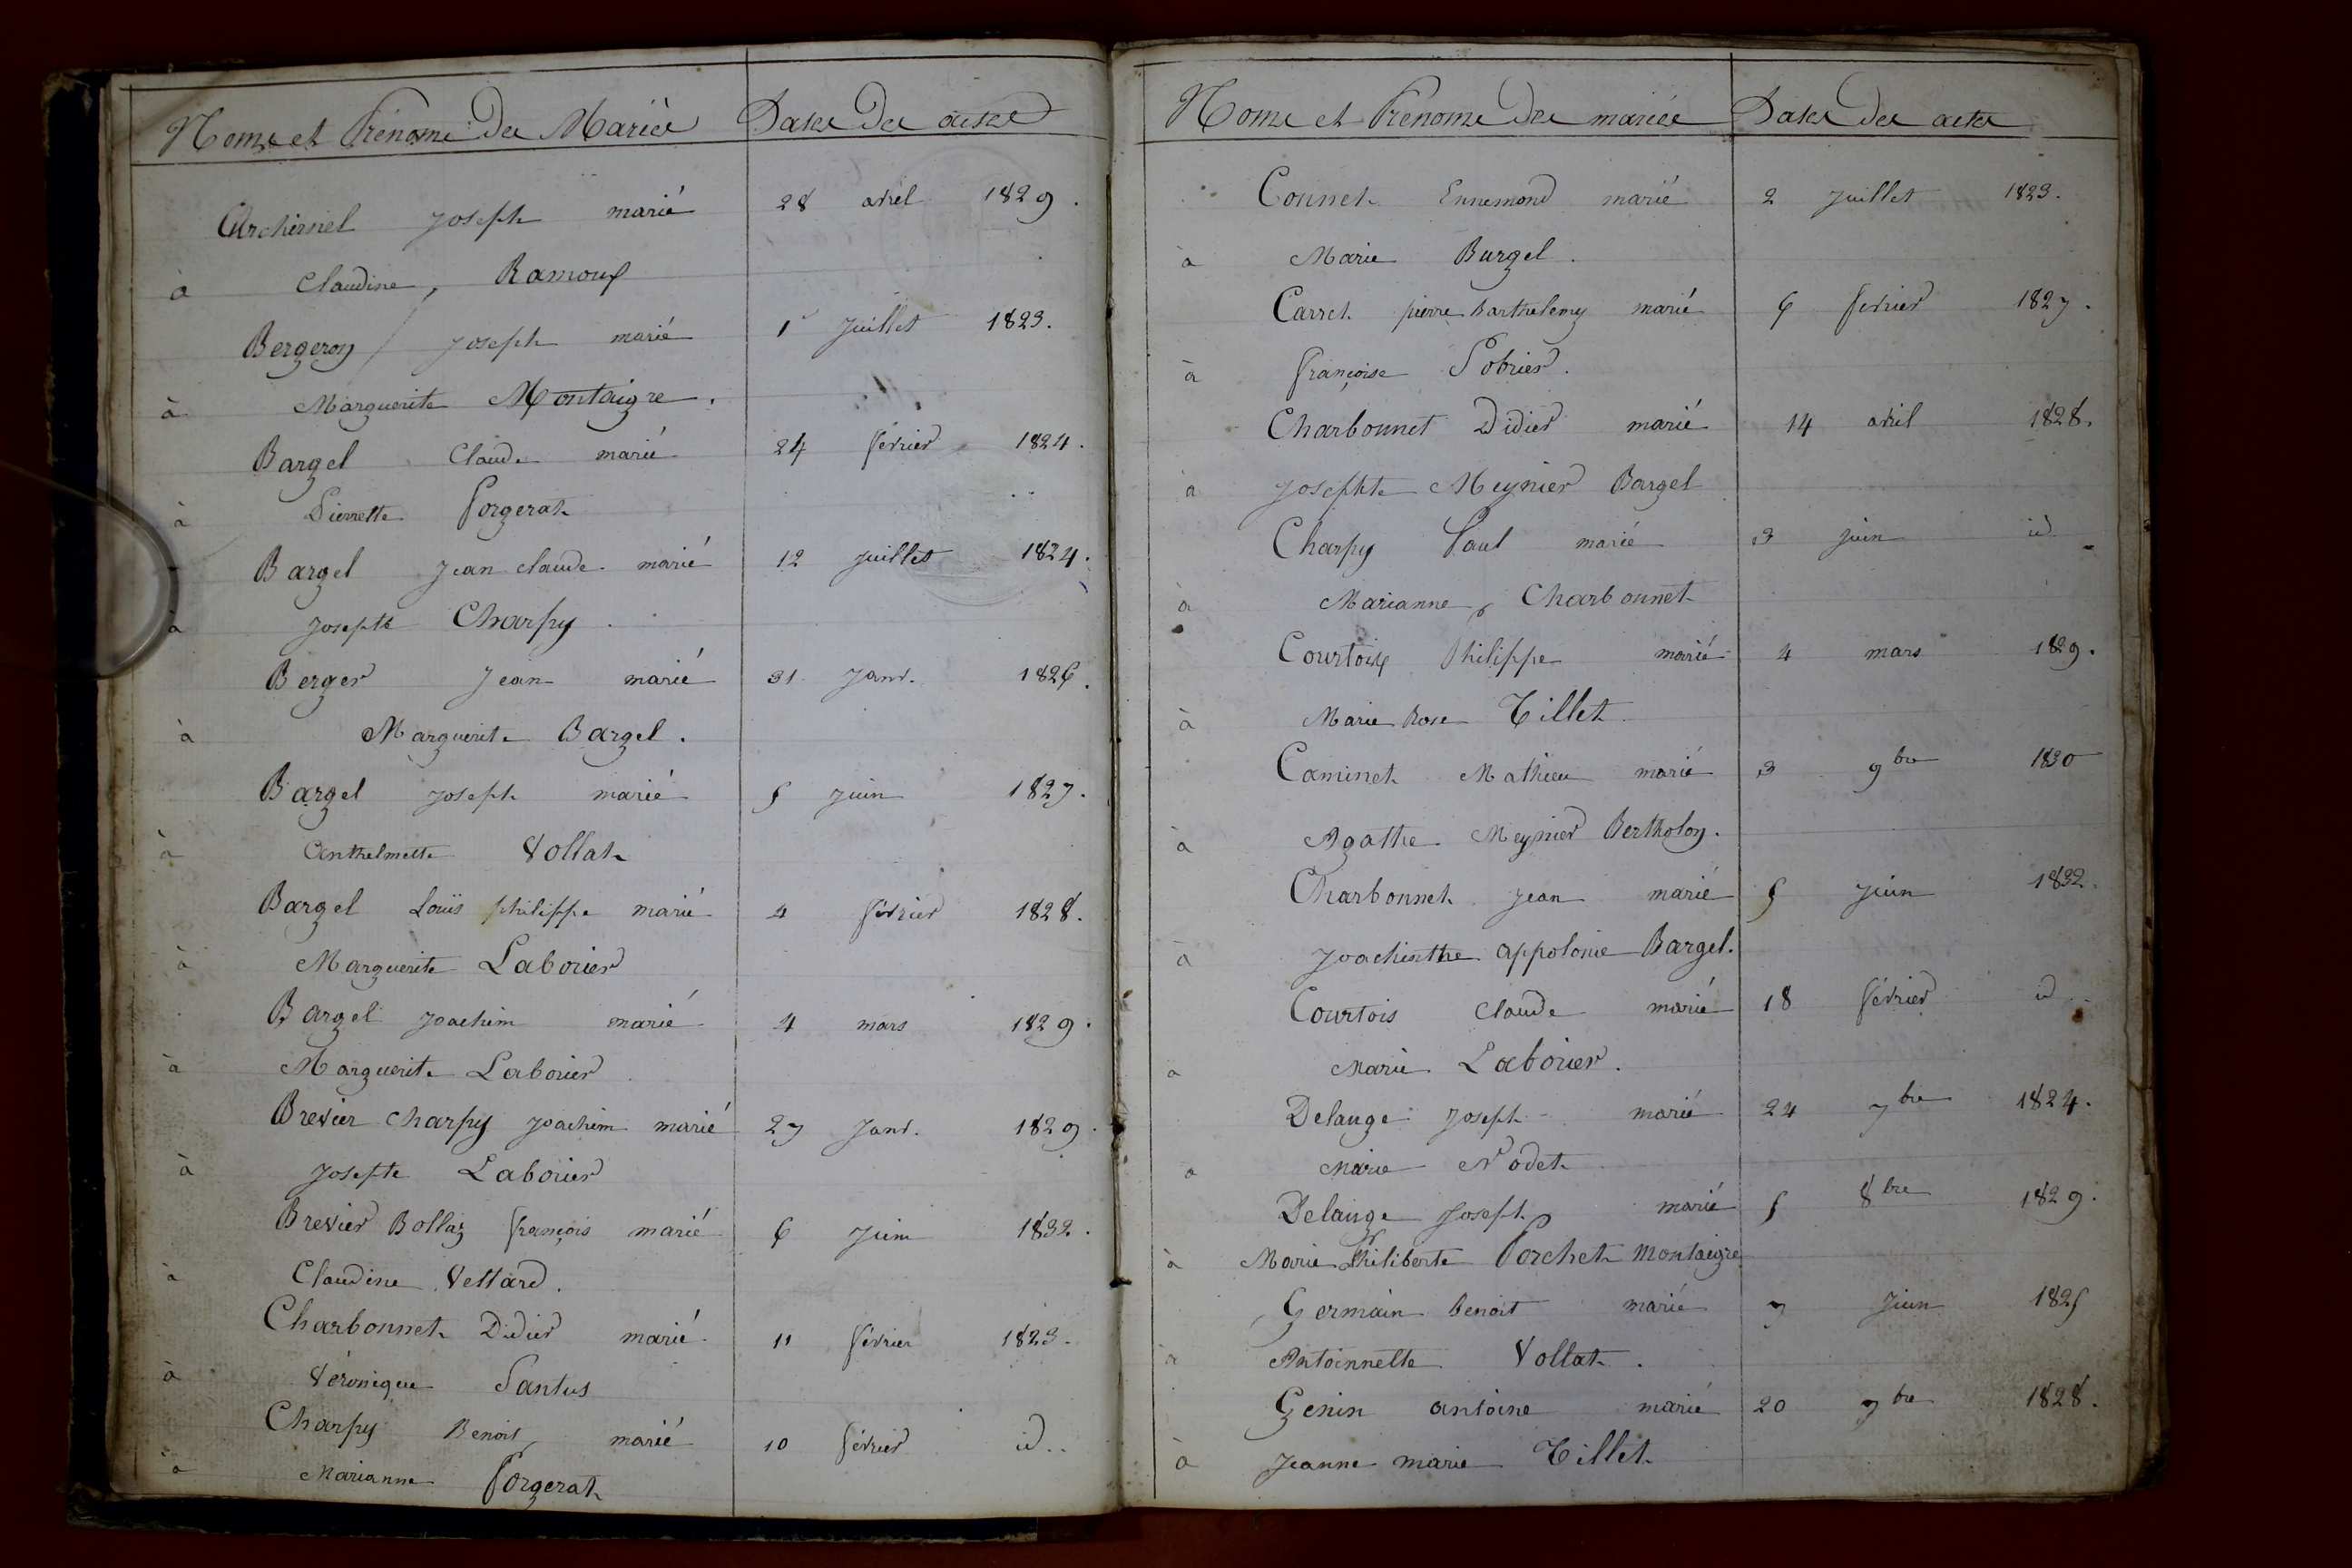 Noms et Prénoms des Mariés Dates des actes
Archirel joseph marié 28 avril 1829.
à Claudine, Ramoux
Bergeron joseph marié 1er juillet 1823.
à Marguerite Montaigre.
Bargel Claude marié 24 février 1824.
à Pierrette Forgerat
Bargel jean claude marié 12 juillet 1824.
à josephte Charpy.
Berger jean marié 31 janv. 1826.
à Marguerite Bargel.
Bargel joseph marié 5 juin 1827.
à Anthelmette Vollat
Bargel Louis philippe marié 4 février 1828.
à Marguerite Laborier
Bargel joachim marié 4 mars 1829.
à Marguerite Laborier
Brevier Charpy joachim marié 27 janv. 1829.
à josepte Laborier
Brevier Bollaz françois marié 6 juin 1832.
à Claudine Vettard.
Charbonnet Didier marié 11 février 1823.
à Véronique Santus
Charpy Benoit marié 10 février id..
à Marianne Forgerat
Noms et Prénoms des mariés Dates des actes
Counet Ennemond marié 2 juillet 1823.
à Marie Burgel.
Carret pierre barthelemy marié 6 fevrier 1827.
à françoise Pobrier.
Charbonnet Didier marié 14 avril 1828.
à josephte Meynier Bargel
Charpy Paul marié 3 juin id
à Marianne, Charbonnet
Courtois Philippe marié 4 mars 1829.
à Marie Rose Tillet
Caminet Mathieu marié 3 9bre 1830
à Agathe Meynier Bertholon.
Charbonnet jean marié 5 juin 1832.
à joachinthe appolonie Bargel.
Courtois Claude marié 18 février id
à Marie Laborier.
Delange joseph marié 24 7bre 1824.
à Marie Nodet
Delange joseph marié 5 8bre 1829.
à Marie Philiberte Porchet Montaigre
Germain benoit marié 7 juin 1825
à Antoinnette Vollat.
Genin antoine marié 20 7bre 1828.
à jeanne marie Tillet